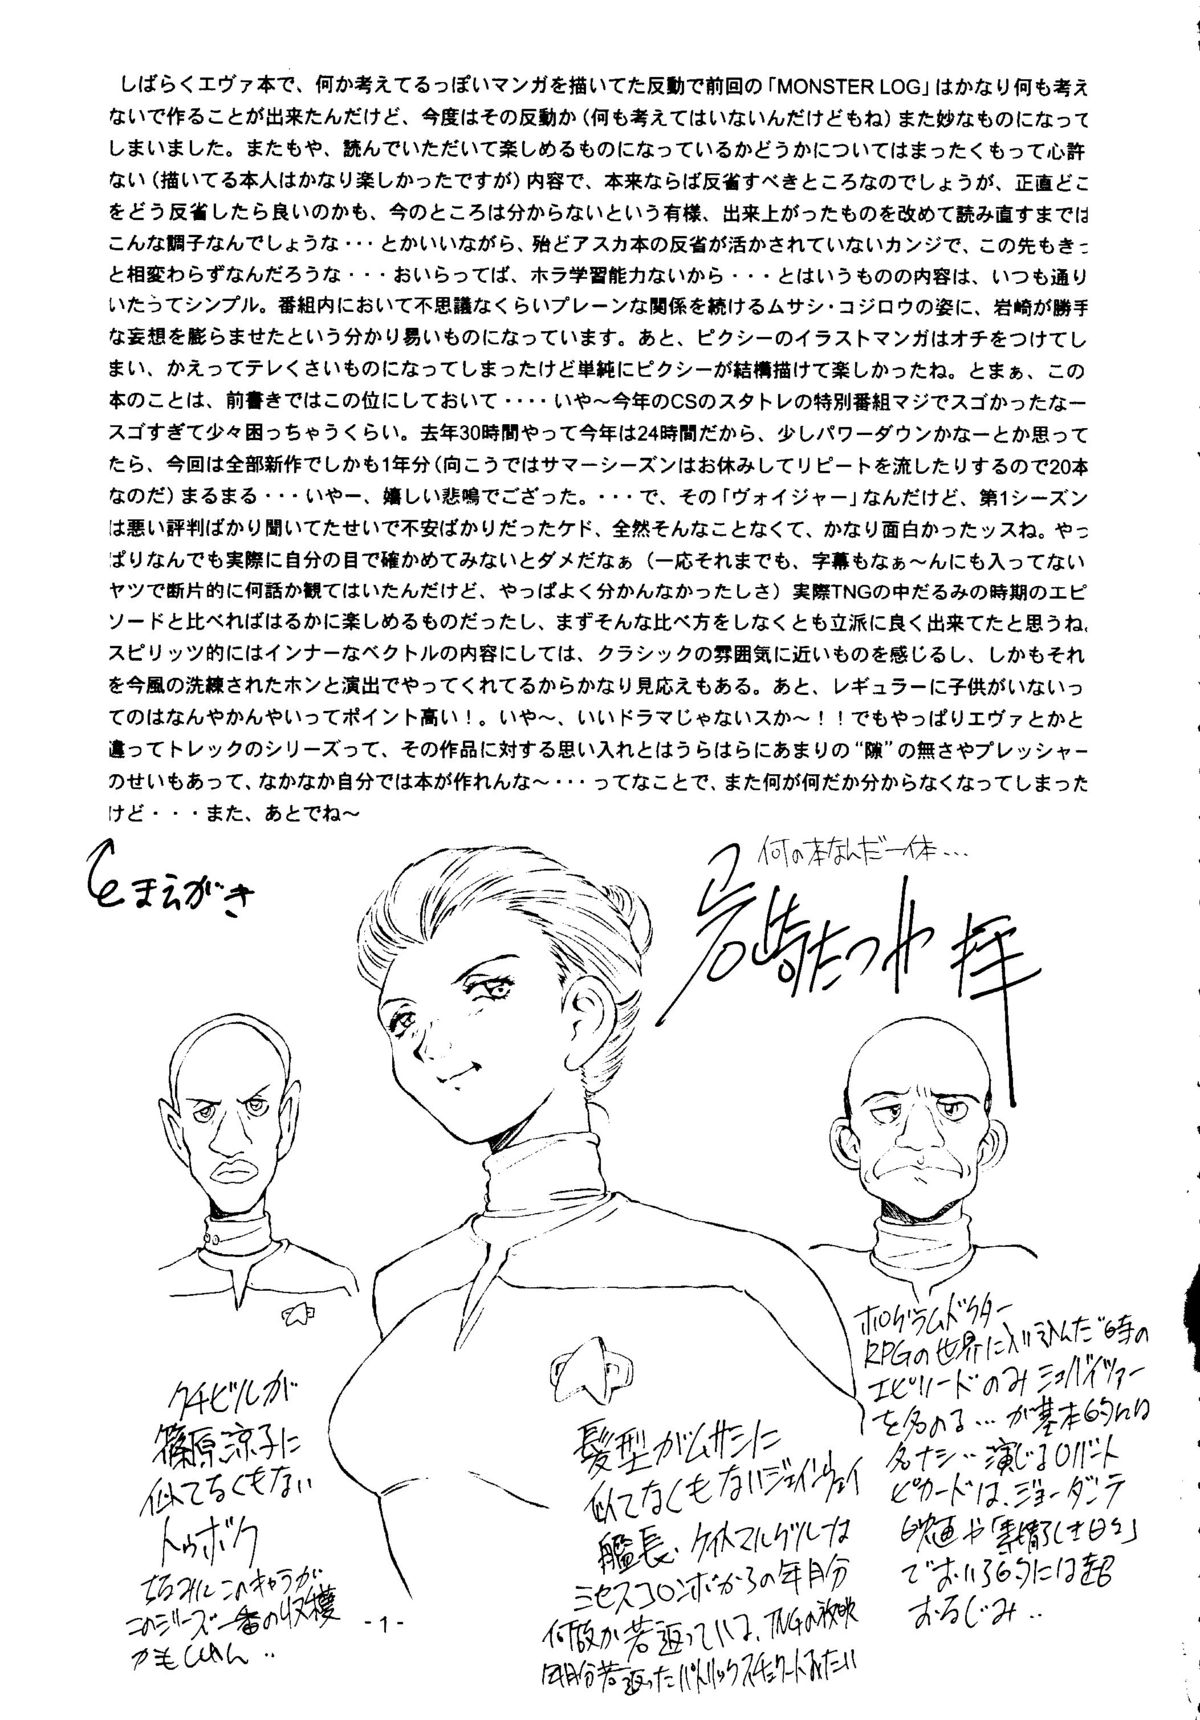 しばらくエヴァ本で、何か考えてるっぽいマンガを描いてた反動で前回の「MONSTER LOG」はかなり何も考え
ないで作ることが出来たんだけど、今度はその反動か(何も考えてはいないんだけどもね)また妙なものになって
しまいました。またもや、読んでいただいて楽しめるものになっているかどうかについてはまったくもって心許
ない(描いてる本人はかなり楽しかったですが)内容で、本来ならば反省すべきところなのでしょうが、正直どこ
をどう反省したら良いのかも、今のところは分からないという有様、出来上がったものを改めて読み直すまでは
こんな調子なんでしょうな・・・とかいいながら、殆どアスカ本の反省が活かされていないカンジで、この先もきっ
と相変わらずなんだろうな・・・おいらってば、ホラ学習能力ないから・・・とはいうものの内容は、いつも通り
いたってシンプル。番組内において不思議なくらいプレーンな関係を続けるムサシ・コジロウの姿に、岩崎が勝手
な妄想を膨らませたという分かり易いものになっています。あと、ピクシーのイラストマンガはオチをつけてし
まい、かえってテレくさいものになってしまったけど単純にピクシーが結構描けて楽しかったね。とまぁ、この
本のことは、前書きではこの位にしておいて・・・・いや〜今年のCSのスタトレの特別番組マジでスゴかったなー
スゴすぎて少々困っちゃうくらい。去年30時間やって今年は24時間だから、少しパワーダウンかなーとか思って
たら、今回は全部新作でしかも1年分(向こうではサマーシーズンはお休みしてリピートを流したりするので20本
なのだ)まるまる・・・いやー、嬉しい悲鳴でござった。・・・で、その「ヴォイジャー」なんだけど、第1シーズン
は悪い評判ばかり聞いてたせいで不安ばかりだったケド、全然そんなことなくて、かなり面白かったッスね。やっ
ぱりなんでも実際に自分の目で確かめてみないとダメだなぁ(一応それまでも、字幕もなぁ〜んにも入ってない
ヤツで断片的に何話か観てはいたんだけど、やっぱよく分かんなかったしさ)実際TNGの中だるみの時期のエピ
ソードと比べればはるかに楽しめるものだったし、まずそんな比べ方をしなくとも立派に良く出来てたと思うね。
スピリッツ的にはインナーなベクトルの内容にしては、クラシックの雰囲気に近いものを感じるし、しかもそれ
を今風の洗練されたホンと演出でやってくれてるからかなり見応えもある。あと、レギュラーに子供がいないっ
てのはなんやかんやいってポイント高い!。いや〜、いいドラマじゃないスか〜!!でもやっぱりエヴァとかと
違ってトレックのシリーズって、その作品に対する思い入れとはうらはらにあまりの“隙”の無さやプレッシャー
のせいもあって、なかなか自分では本が作れんな〜・・・ってなことで、また何が何だか分からなくなってしまった
けど・・・また、あとでね〜
とまえがき
何の本なんだ一体…
岩崎たつや 拝
クチビルが
篠原涼子に
似てなくもない
トゥボク
ちなみに このキャラが
このシリーズ一番の収穫
かもしれん‥
髪型がムサシに
似てなくもないジェインウェイ
艦長、ケイトマルグルーは
ミセスコロンボからの年月分
何故か若返っている、TNGの放映
年月分若返ったパトリックスチュワートみたい
ホログラムドクター
RPGの世界に入り込んだ時の
エピソードのみシュバイツァー
を名のる…が基本的には
名ナシ‥演じるロバート
ピカードは、ジョーダンテ
映画や「素晴らしき日々」
でおいら的には超
おなじみ‥
-1-